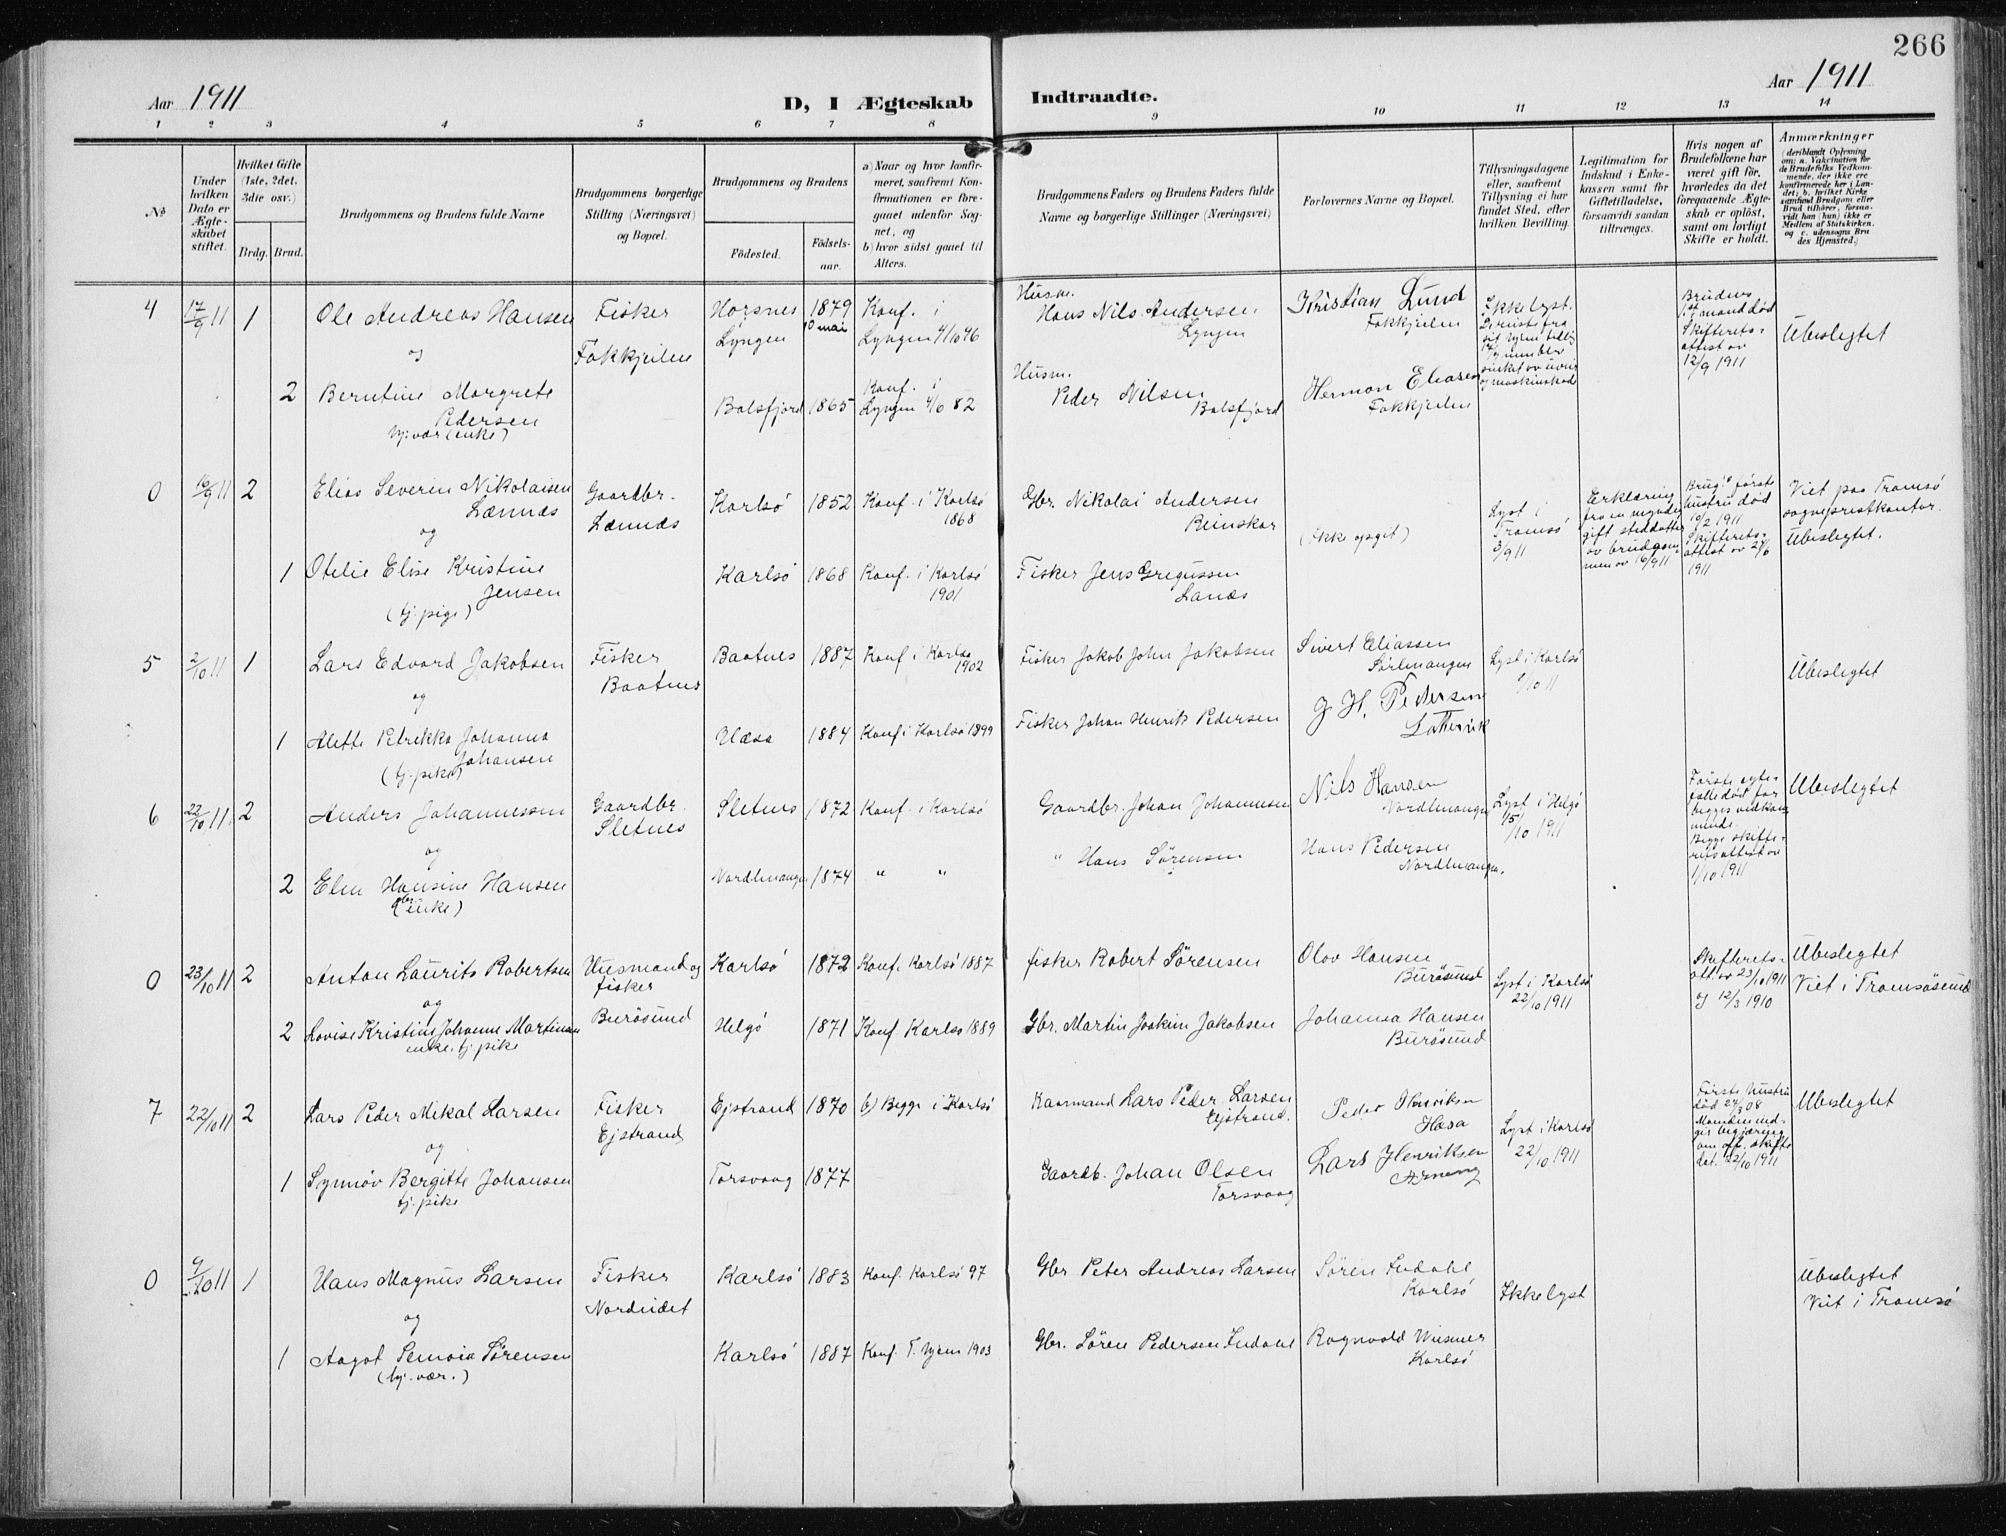 266
Aar 1911
D, I Ægteskab Indtraadte.
Aar 1911
1 2 3 4 5 6 7 8 9 10 11 12 13 14
No
Under hvilken Dato er Ægteskabet stiftet.
Hvilket Gifte (1ste, 2det, 3die osv.)
Brdg. Brud.
Brudgommens og Brudens fulde Navne
Brudgommens borgerlige Stilling (Næringsvei) og Bopæl.
Brudgommens og Brudens
Födested.
Födsels-aar.
a) Naar og hvor konfirmeret, saafremt Konfirmationen er foregaaet udenfor Sognet, og
b) hvor sidst gaaet til Alters.
Brudgommens Faders og Brudens Faders fulde Navne og borgerlige Stillinger (Næringsvei)
Forlovernes Navne og Bopæl.
Tillysningsdagene eller, saafremt Tillysning ei har fundet Sted, efter hvilken Bevilling.
Legitimation for Indskud i Enkekassen samt for Giftetilladelse, forsaavidt saadan tiltrænges.
Hvis nogen af Brudefolkene har været gift för, hvorledes da det foregaaende Ægteskab er oplöst, samt om lovligt Skifte er holdt.
Anmærkninger
(deriblandt Oplysning om: a. Vakcination for de Brudefolks Vedkommende, der ikke ere konfirmerede her i Landet; b. hvilket Kirkesamfund Brudgom eller Brud tilhörer, forsaavidt han (hun) ikke er Medlem af Statskirken, og c. udensogns Brudes Hjemsted.)
4 17/9 11 1 Ole Andreas Hansen Fisker Horsnes 1879 Konf. i Husm.
og Fakkjeilen Lyngen 10 mai Lyngen 4/10 96 Hans Nils Andersen Lyngen
Kristian Lund Fakkjeilen
Ikke lyst.
Brudens 1st mand död Skifterets-attest av 12/9 1911
Ubeslegtet
2 Berntine Margrete Pedersen Balsfjord 1865 Konf. i Lyngen 82 Husm. Peder Nilsen Balsfjord Herman Eliasen Fakkjeilen
(enke)
0 16/9 11 2 Elias Severin Nikolaisen Lænnæs Gaardbr. Lænnæs Karlsö 1852 Konf. i Karlsö 1868 Gbr. Nikolai Andersen Reinskar
og
(ikke opgit)
Lyst i Tromsö 3/9 11
Erklæring fra en myndig gift steddatter av brudgommen av 16/9 11
Brug.s förste hustru död 10/2 1911 Skifterets-attest av 1911
Viet paa Tromsö sogneprestkontor.
Ubeslegtet.
1 Otelie Elise Kristine Jensen Karlsö 1868 Konf. i Karlsö 1901 Fisker Jens Gregussen Lanæs
(tj. pige)
5 2/10 11 1 Lars Edvard Jakobsen Fisker Baatnes Baatnes 1887 Konf. i Karlsö 1902 Fisker Jakob John Jakobsen Sivert Eliassen Sörlenangen Lyst i Karlsö 1/10 11 Ubeslegtet
og
1 Alette Petrikke Johanna Johansen 1884 Konf i Karlsö 1899 Fisker Johan Henrik Pedersen J H. Pedersen
(tj. pike)
6 22/10 11. 2 Anders Johannessen Gaardbr. Sletnes Sletnes 1872 Konf. i Karlsö Gaardbr. Johan Johannesen Nils Hansen Nordlenangen Lyst i Helgö 15/10 1911
og
Förste egtefolle död for begges vedkommende Begge skifteretsattest av 1/10 1911
Ubeslegtet
2 Elen Hansine Hansen Nordlenangen 1874 " " " Hans Sörensen Hans Pedersen Nordlenangen.
(enke)
0 23/10 11 2 Anton Laurits Robertsen Husmand og fisker Burösund Karlsö 1872 Konf. Karlsö 1887 fisker Robert Sörensen Olav Hansen Burösund Lyst i Karlsö 22/10 1911
og
Skifterets-att. av 23/10 1911 og 12/3 1910
Ubeslegtet
Viet i Tromsösund
2 Lovise Kristine Johanne Martinsen Helgö 1871 Konf Karlsö 1889 Gbr. Martin Joakim Jakobsen Johanna Hansen Burösund
enke. tj. pike
7 22/10 11 2 Lars Peder Mikal Larsen Fisker Ejstrand Ejstrand 1870 b) Begge i Karlsö Kaarmand Lars Peder Larsen Ejstrand. Peder Henriksen Lyst i Karlsö 22/10 1911
og
Förste hustru död 27/3 08
Ubeslegtet
1 Synnöv Bergitte Johansen Torsvaag 1877 Gaardb. Johan Olsen Torsvaag Lars Henriksen
tj. pike
0 11 1 Hans Magnus Larsen Fisker Nordeidet Karlsö 1883 Konf. Karlsö 97 Gbr Peter Andreas Larsen Sören Indahl Karlsö Ikke lyst
og
Ubeslegtet
Viet i Tromsö
1 Aagot Sörensen Karlsö 1887 Konf. 1903 Gbr. Sören Pedersen Indahl Ragnvald Karlsö
(hj. vær.)